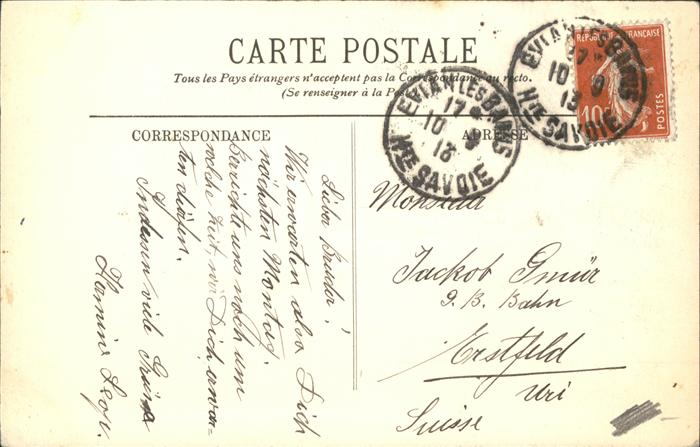 CARTE POSTALE
Tous les Pays étrangers n'acceptent pas la Correspondance au recto.
(Se renseigner à la Poste
CORRESPONDANCE
ADRESSE
EVIAN LES BAINS
17
10 9
13
Hte SAVOIE
EVIAN LES BAINS
17
10 9
13
Hte SAVOIE
RÉPUBLIQUE FRANÇAISE
10c
POSTES
Lieber Bruder!
Wir erwarten also Dich
nächsten Montag.
Berichte uns noch um
welche Zeit, wir Dich erwar-
ten dürfen.
Indessen viele Grüsse
Monsieur
Jackob Gmür
G. B. Bahn
Erstfeld
Uri
Suisse